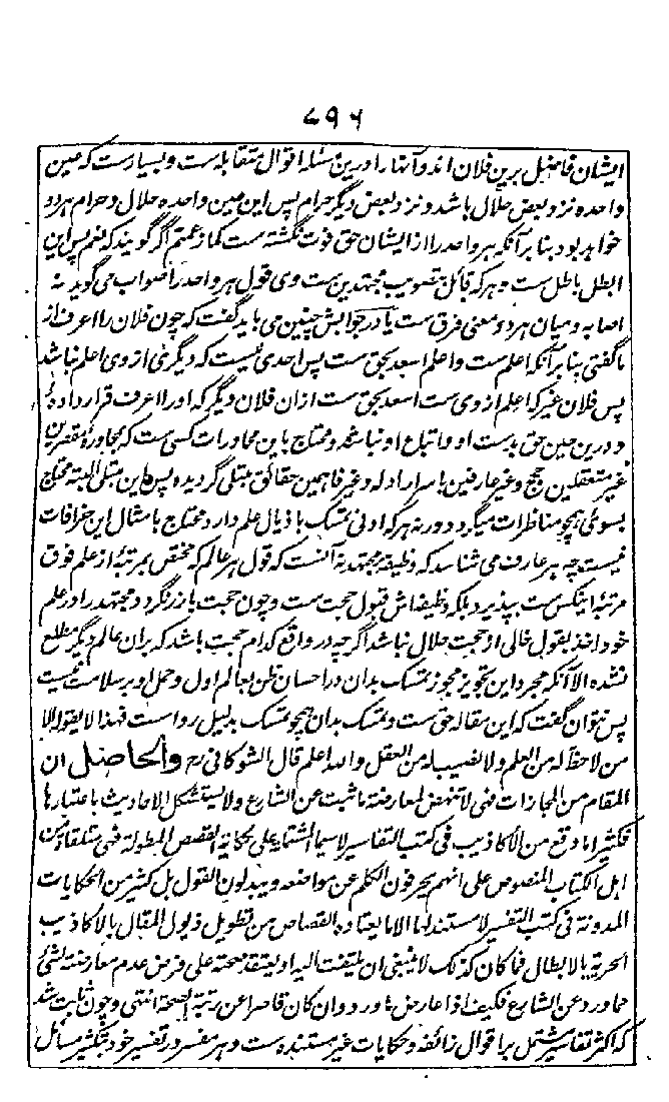 ۷۹۶
ایشان فاضل برین فلان اند و آنها را درین مسئله اقوال متقابله ست و بسیار ست که عین
واحده نزد بعض حلال باشد و نزد بعض دیگر حرام پس این عین واحده حلال و حرام هر دو
خواهد بود بنا بر آنکه هر واحد را از ایشان حق فوت نگشته ست کما زعمتم اگر گویند که نعم پس این
ابطل باطل ست و هر که قائل تصویب مجتهدین ست وی قول هر واحد را صواب می گوید نه
اصابه و میان هر دو معنی فرق ست یا در جوابش چنین می باید گفت که چون فلان را اعرف از
ما گفتی بنا بر آنکه اعلم ست و اعلم اسعد بحق ست پس احدی نیست که دیگری از وی اعلم نباشد
پس فلان غیر که اعلم از وی ست اسعد بحق ست ازان فلان دیگر که او را اعرف قرار داده
و درین حین حق بدست او و اتباع او نباشد و محتاج باین محاورات کسی ست که بمجاورهٔ مقصرین
غیر متعقلین حجج و غیر عارفین باسرار ادله و غیر فاهمین حقائق مبتلی گردیده پس این مبتلی البته محتاج
بسوی همچو مناظرات میگردد ورنه هر که ادنی تمسک باذیال علم دارد محتاج بامثال این خرافات
نیست چه هر عارف می شناسد که وظیفهٔ مجتهد نه آنست که قول هر عالم که مختص بمرتبهٔ از علم فوق
مرتبهٔ اینکس ست بپذیرد بلکه وظیفه اش قبول حجت ست و چون حجت بارز نگردد مجتهد را در علم
خود اخذ بقول خالی از حجت حلال نباشد اگرچه در واقع کدام حجت باشد که بران عالم دیگر مطلع
نشده الا آنکه مجرد این تجویز مجوز تمسک بدان در احسان ظن بعالم اول و حمل او بر سلامت نیست
پس نتوان گفت که این مقاله حق ست و تمسک بدان همچو تمسک بدلیل رواست فهذا لا یقوله الا
من لا حظ له من العلم ولا نصیب له من العقل والله اعلم قال الشوکانی رح والحاصل ان
المقام من المجازات فی لا تنهض لمعارضة ما ثبت عن الشارع ولا یستشکل الاحادیث باعتبارها
فکثیرا ما وقع من الاکاذیب فی کتب التفاسیر لا سیما المشتملة علی حکایة القصص المطولة فهی متلقاة من
اهل الکتاب المنصوص علی انهم یحرفون الکلم عن مواضعه ویبدلون القول بل کثیر من الحکایات
المدونة فی کتب التفسیر لا مستند لها الا ما یعتاده القصاص من تطویل ذیول المقال بالاکاذیب
الحریة بالابطال فما کان کذلک لا ینبغی ان یلتفت الیه او یعتقد صحته علی فرض عدم معارضته لشئ
مما ورد عن الشارع فکیف اذا عارض ما ورد وان کان قاصرا عن رتبة الصحة انتهی و چون ثابت شد
که اکثر تفاسیر مشتمل بر اقوال زائفه و حکایات غیر مستنده ست و هر مفسر در تفسیر خود بتکثیر مسائل